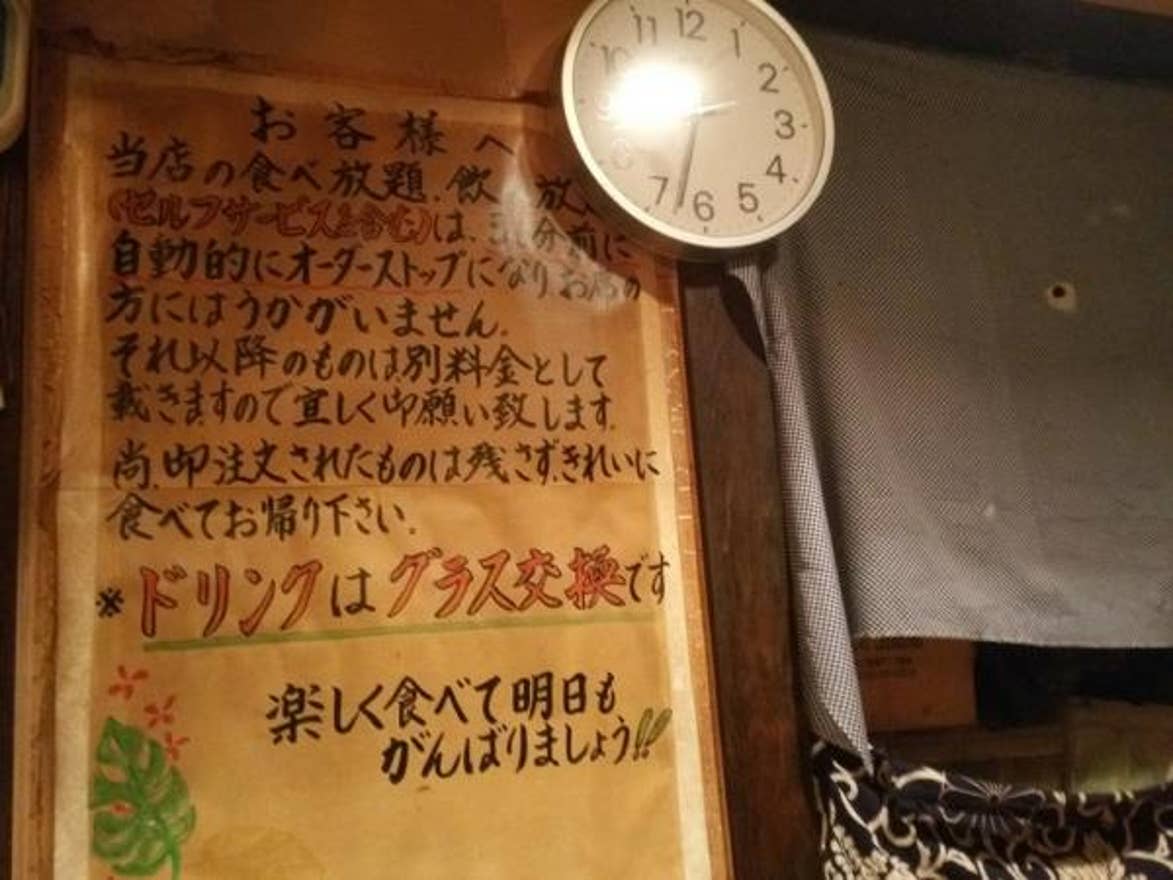 お客様へ
当店の食べ放題、飲 放
(セルフサービスも含む)は、 分前に
自動的にオーダーストップになりお席の
方にはうかがいません。
それ以降のものは別料金として
戴きますので宜しく御願い致します。
尚、御注文されたものは残さず、きれいに
食べてお帰り下さい。
※ドリンクはグラス交換です
楽しく食べて明日も
がんばりましょう!!
11 12 1
10 2
3
4
7 6 5